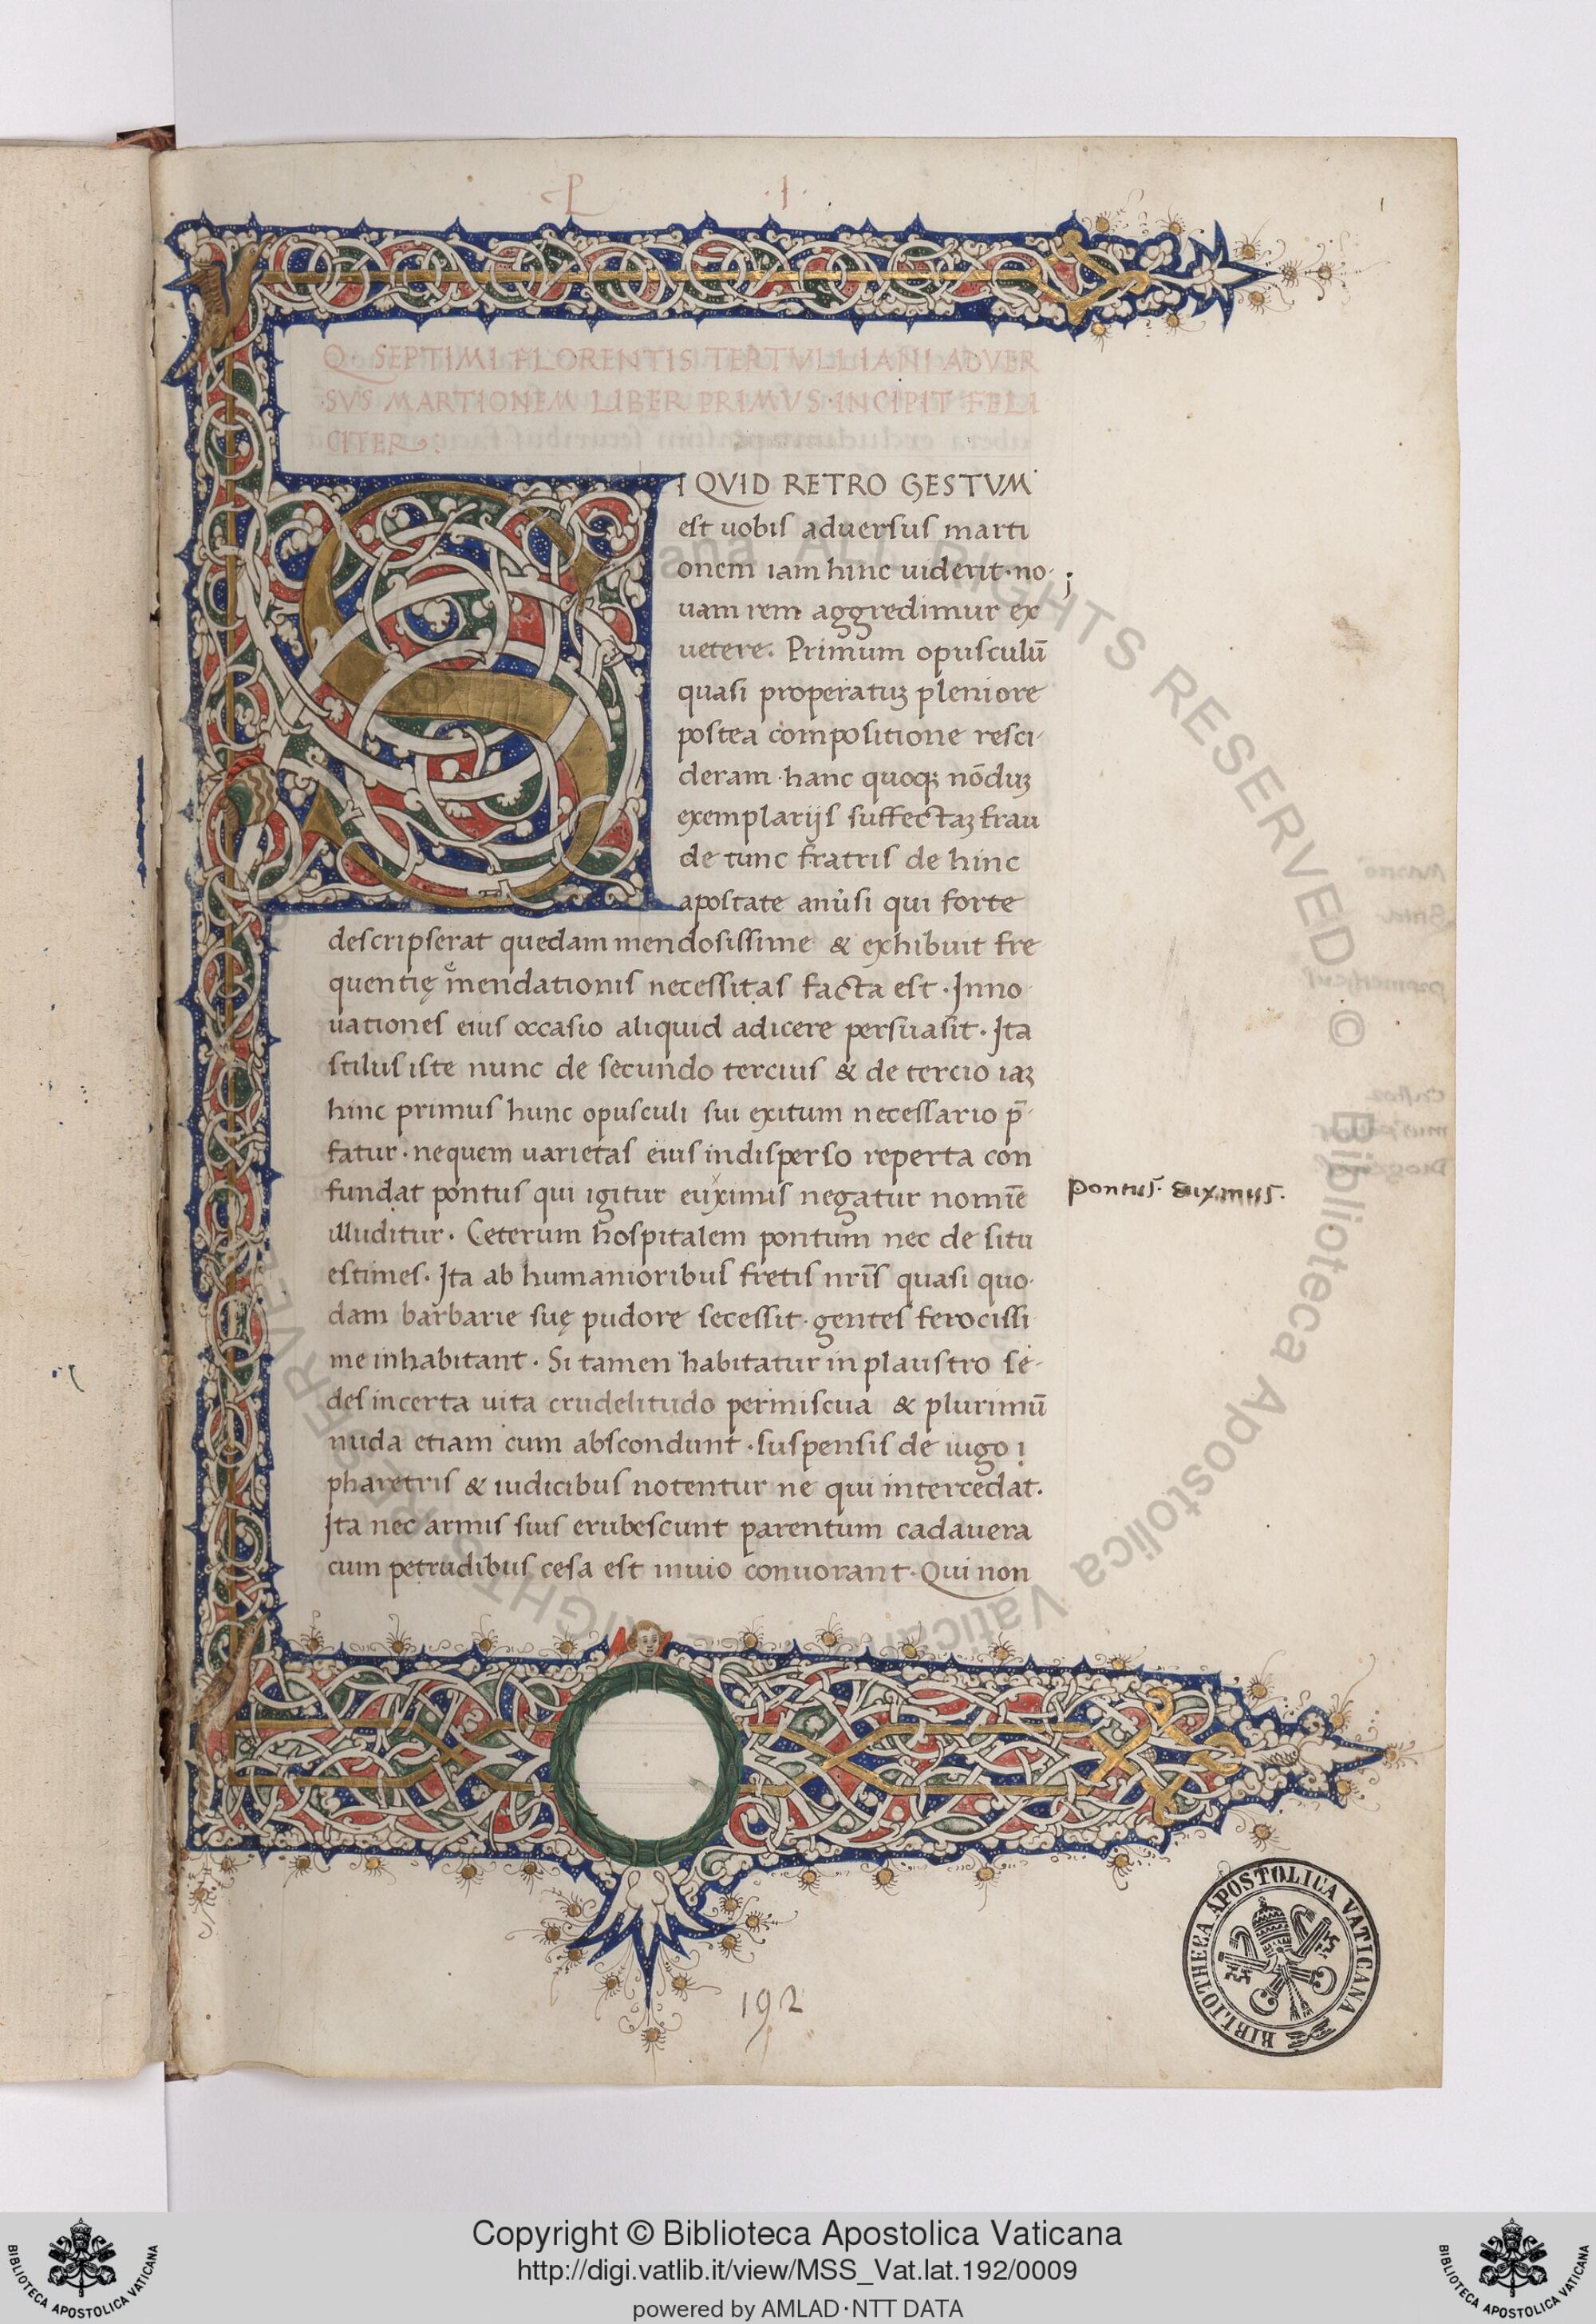 P · I ·
1
Q · SEPTIMI FLORENTIS TERTVLLIANI ADVER
SVS MARTIONEM LIBER PRIMVS INCIPIT FELI
CITER :
SI QVID RETRO GESTVM
est uobis aduersus marti
onem iam hinc uiderit · no
uam rem aggredimur ex
uetere. Primum opusculū
quasi properatuꝫ pleniore
postea compositione resci
deram · hanc quoqꝫ nōduꝫ
exemplarijs suffectaꝫ frau
de tunc fratris de hinc
apostate amisi qui forte
descripserat quedam mendosissime & exhibuit fre
quentię emendationis necessitas facta est · Inno
uationes eius occasio aliquid adicere persuasit · Ita
stilus iste nunc de secundo tercius & de tercio iaꝫ
hinc primus hunc opusculi sui exitum necessario p̄
fatur · nequem uarietas eius indisperso reperta con
fundat pontus qui igitur euximis negatur nomīe
illuditur · Ceterum hospitalem pontum nec de situ
estimes · Ita ab humanioribus fretis nr̄is quasi quo
dam barbarie suę pudore secessit · gentes ferocissi
me inhabitant · Si tamen habitatur in plaustro se
des incerta uita crudelitudo permiscua & plurimū
nuda etiam cum abscondunt · suspensis de iugo
pharetris & iudicibus notentur ne qui intercedat ·
Ita nec armis suis erubescunt parentum cadauera
cum petrudibus cesa est inuio conuorant · Qui non
pontus · euximus ·
192
BIBLIOTHECA APOSTOLICA VATICANA
Biblioteca Apostolica Vaticana ALL RIGHTS RESERVED ©
Copyright © Biblioteca Apostolica Vaticana
http://digi.vatlib.it/view/MSS_Vat.lat.192/0009
powered by AMLAD·NTT DATA
BIBLIOTECA APOSTOLICA VATICANA
BIBLIOTECA APOSTOLICA VATICANA